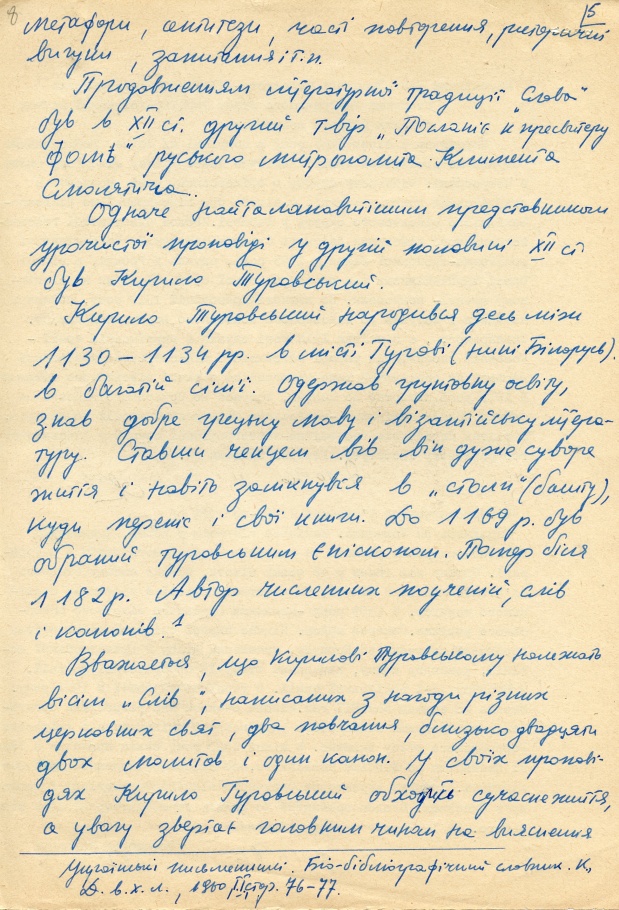 8
15
метафори, антитези, часті повторення, риторичні
вигуки, запитання і т.п.
Продовженням літературної традиції "Слова"
був в XII ст. другий твір „Посланіє к пресвитеру
Фомѣ" руського митрополита Климента
Смолятича.
Одначе найталановитішим представником
урочистої проповіді у другій половині XII ст
був Кирило Туровський.
Кирило Туровський народився десь між
1130 – 1134 рр. в місті Турові (нині Білорусь).
в багатій сім'ї. Одержав грунтовну освіту,
знав добре грецьку мову і візантійську літера-
туру. Ставши ченцем вів він дуже суворе
життя і навіть замкнувся в „столп" (башту),
куди переніс і свої книги. До 1169 р. був
обраний туровським єпіскопом. Помер біля
1182 р. Автор численних поученій, слів
і канонів.1
Вважається, що Кирилові Туровському належать
вісім „Слів", написаних з нагоди різних
церковних свят, два повчання, близько двадцяти
двох молитов і один канон. У своїх пропові-
дях Кирило Туровський обходить сучасне життя,
а увагу звертає головним чином на вияснення
Українські письменники. Біо-бібліографічний словник. К.,
Д. в. х. л., 1960, стор. 76–77.